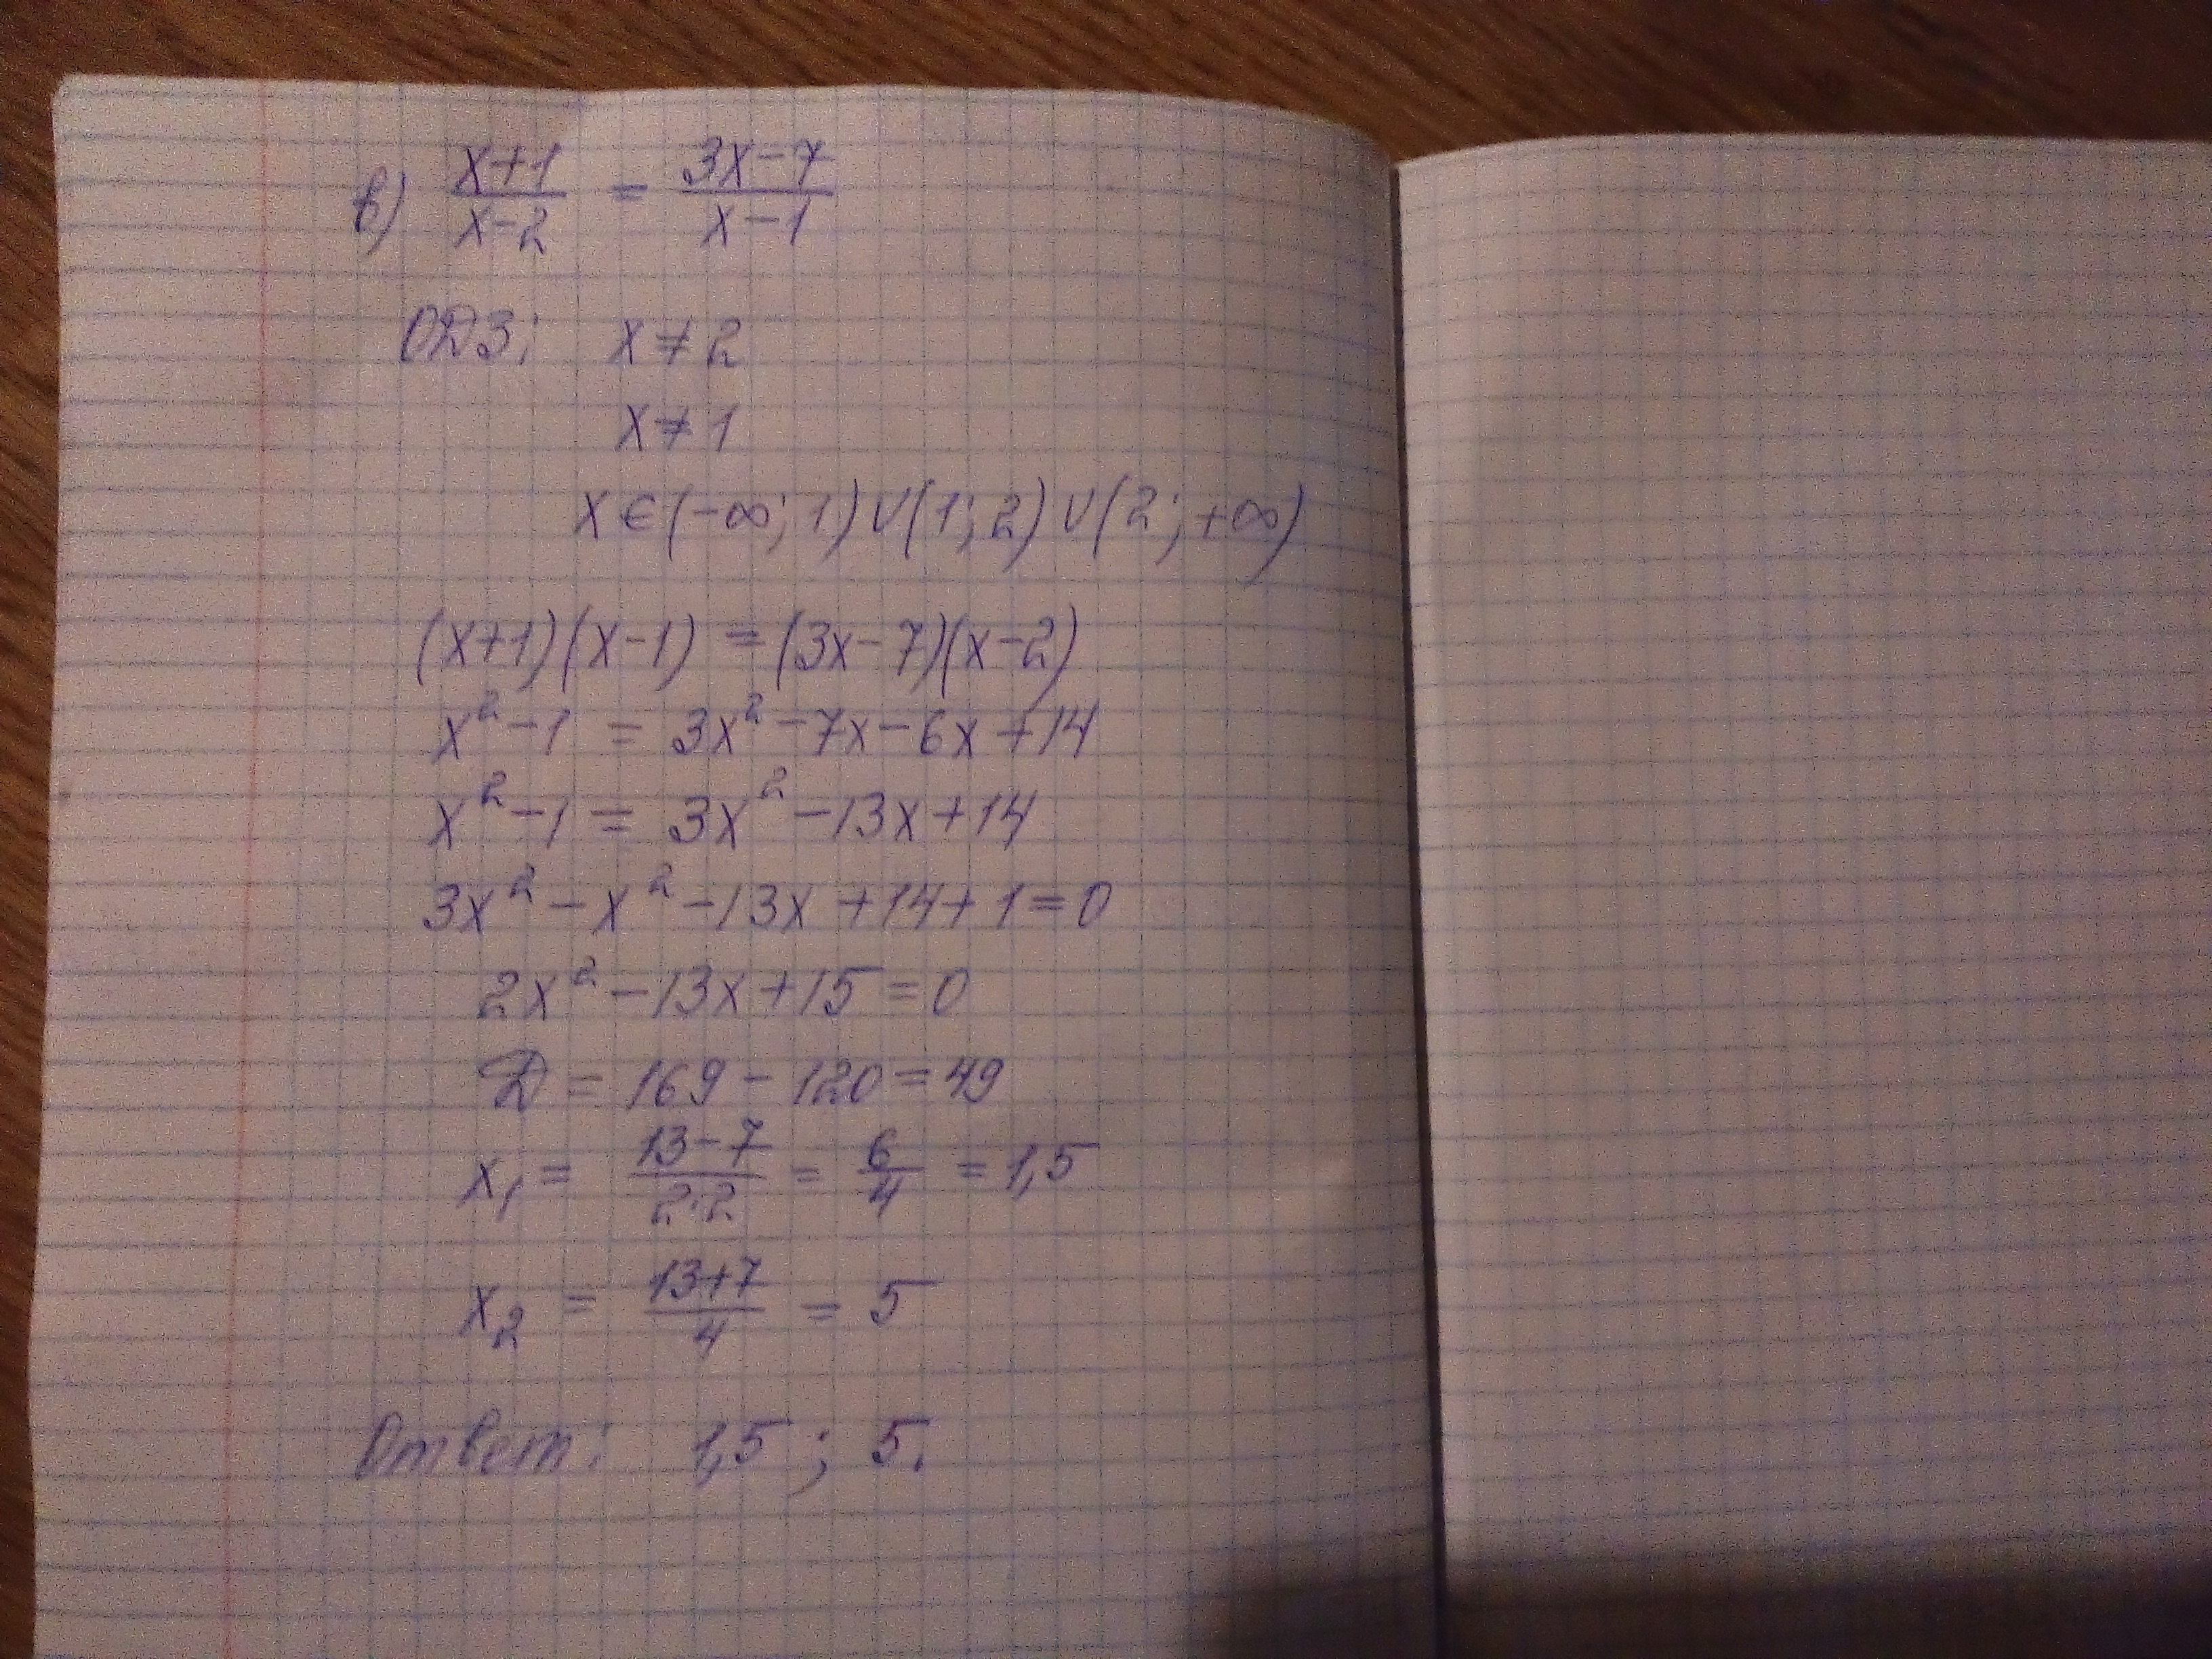 в) x+1/x-2 = 3x-7/x-1
ОДЗ: x≠2
x≠1
x∈(-∞; 1)∪(1; 2)∪(2; +∞)
(x+1)(x-1) = (3x-7)(x-2)
x²-1 = 3x²-7x-6x+14
x²-1 = 3x²-13x+14
3x²-x²-13x+14+1=0
2x²-13x+15=0
D = 169-120=49
x₁ = 13-7/2·2 = 6/4 = 1,5
x₂ = 13+7/4 = 5
Ответ: 1,5 ; 5.